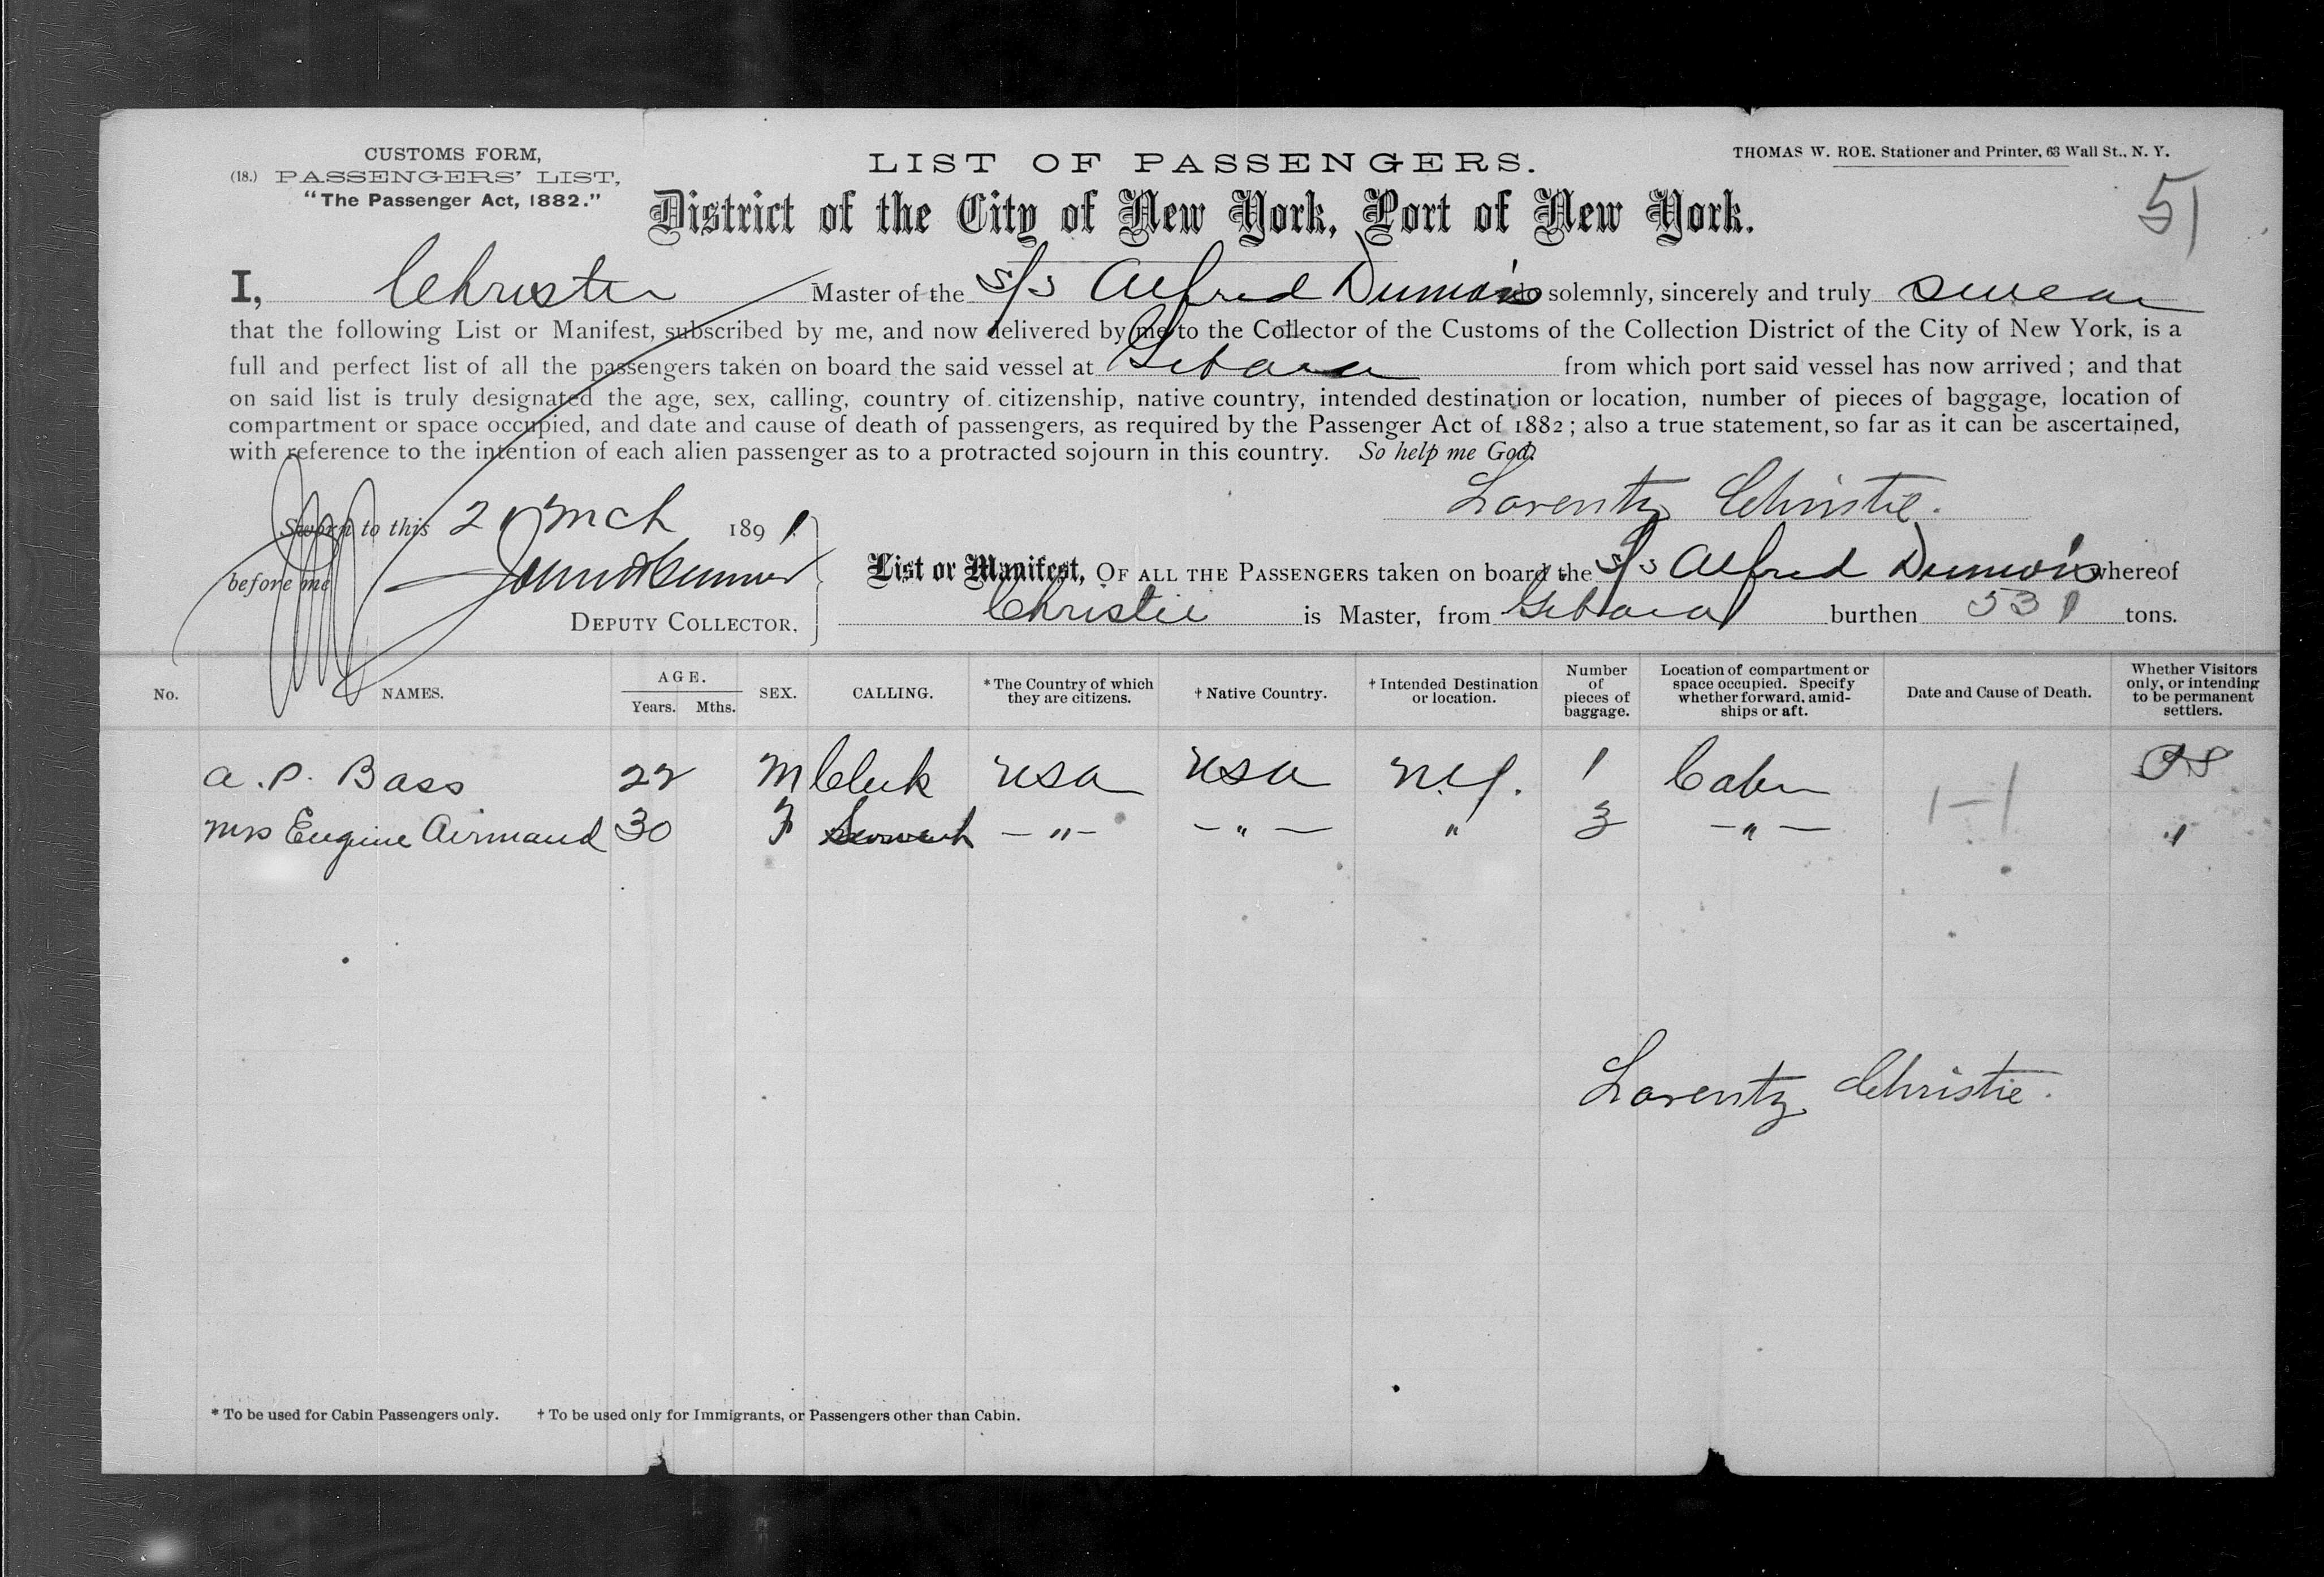 CUSTOMS FORM,
(18.) PASSENGERS' LIST,
"The Passenger Act, 1882."
LIST OF PASSENGERS.
THOMAS W. ROE, Stationer and Printer, 63 Wall St., N. Y.
District of the City of New York, Port of New York.
51
I, Christie Master of the S/S Alfred Dumois do solemnly, sincerely and truly swear
that the following List or Manifest, subscribed by me, and now delivered by me to the Collector of the Customs of the Collection District of the City of New York, is a
full and perfect list of all the passengers taken on board the said vessel at Gibara from which port said vessel has now arrived; and that
on said list is truly designated the age, sex, calling, country of citizenship, native country, intended destination or location, number of pieces of baggage, location of
compartment or space occupied, and date and cause of death of passengers, as required by the Passenger Act of 1882; also a true statement, so far as it can be ascertained,
with reference to the intention of each alien passenger as to a protracted sojourn in this country. So help me God.
Lorentz Christie.
Sworn to this Mch 1891
before me
DEPUTY COLLECTOR.
List or Manifest, OF ALL THE PASSENGERS taken on board the S/S Alfred Dumois whereof
Christie is Master, from Gibara burthen 531 tons.
No. NAMES. AGE. Years. Mths. SEX. CALLING. * The Country of which they are citizens. † Native Country. † Intended Destination or location. Number of pieces of baggage. Location of compartment or space occupied. Specify whether forward, amidships or aft. Date and Cause of Death. Whether Visitors only, or intending to be permanent settlers.
A. P. Bass 22 M Clerk USA USA N.Y. 1 Cabin
Mrs Eugine Airmand 30 F - " - - " - " 3 - " - "
1-1
Lorentz Christie.
* To be used for Cabin Passengers only. † To be used only for Immigrants, or Passengers other than Cabin.